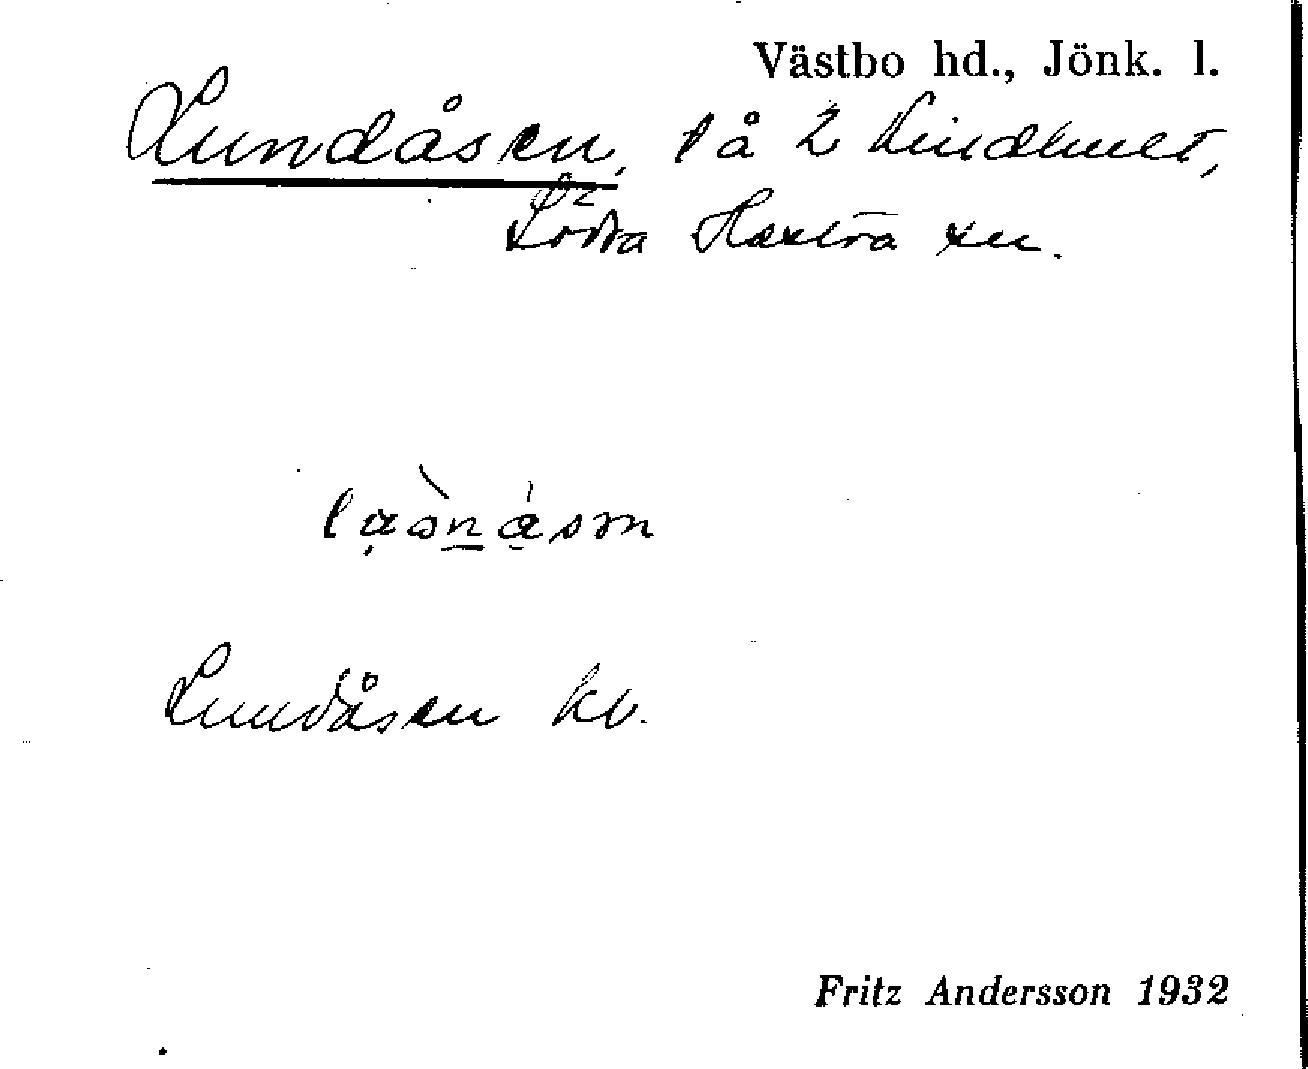 Västbo hd., Jönk. l.
Lundåsen, l å 2 Lindhult,
Södra Hestra sn.
Lundåsen kv.
Fritz Andersson 1932